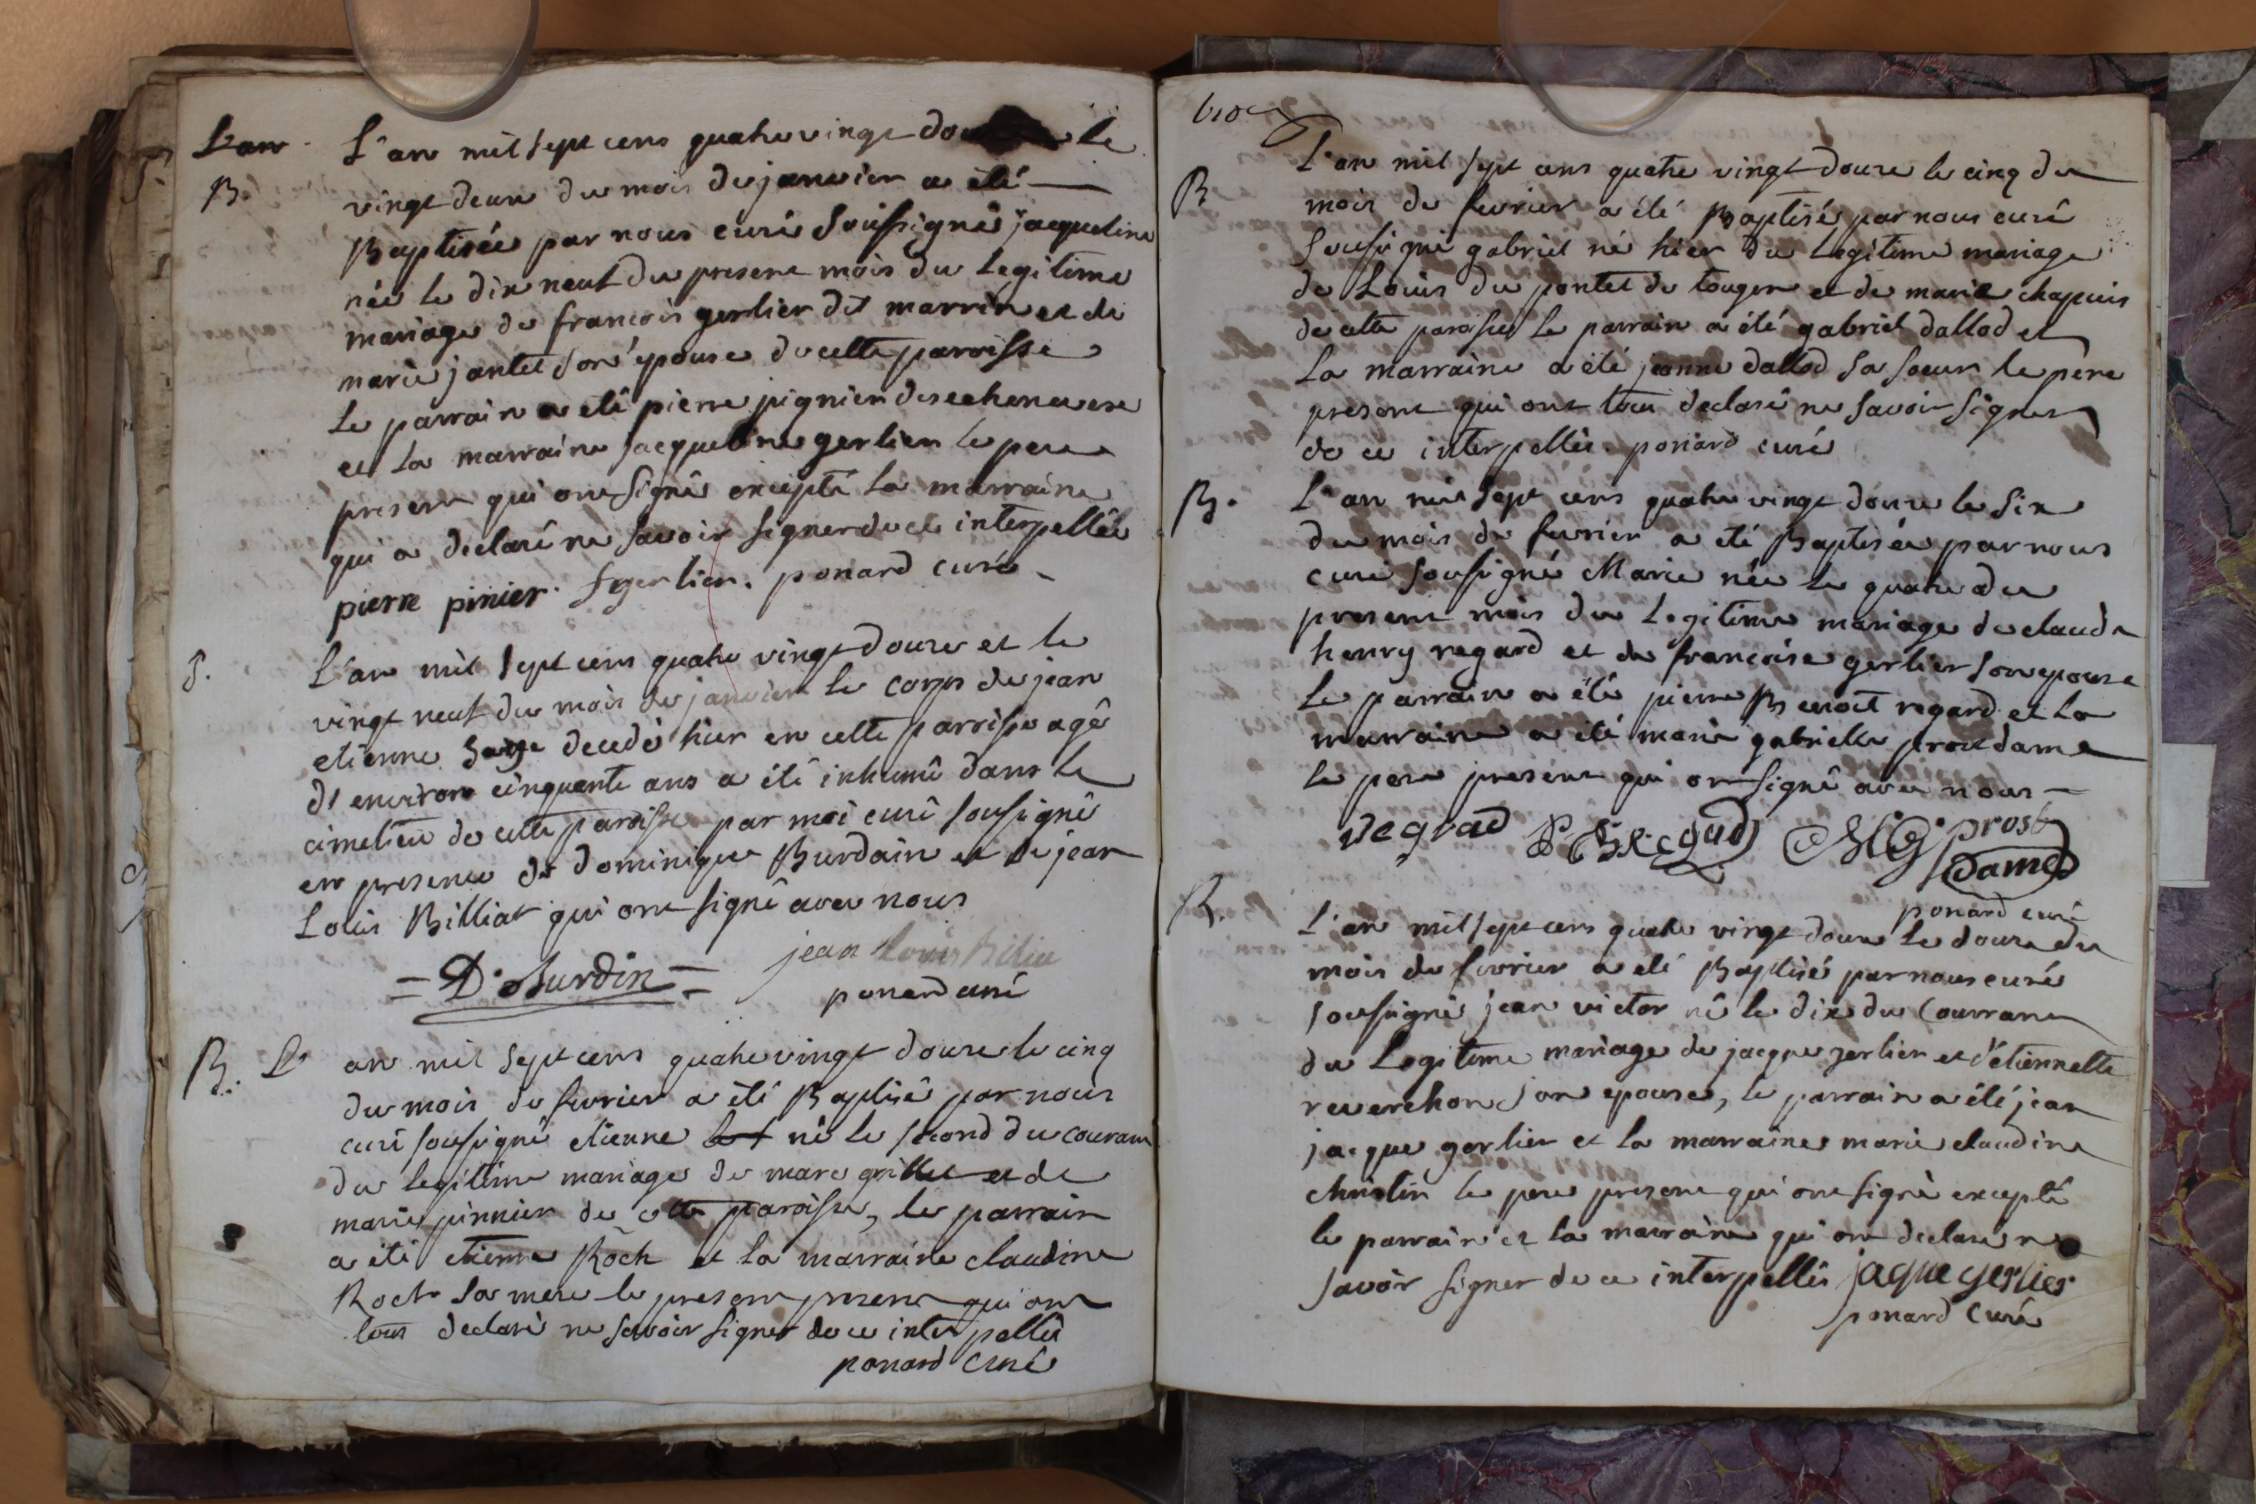 L'an
B.
L'an mil sept cens quatre vingt le
vingt deux du mois de janvier a été
Baptisée par nous curé soussigné jacqueline
née le dix neuf du present mois du legitime
mariage de francois gerlier dit marrin et de
marie jantet son épouse de cette paroisse
le parrain a été pierre pignier
et la marraine jacqueline gerlier le pere
present qui ont signé excepté la marraine
qui a declaré ne savoir signer de ce interpellée
pierre pinier. f gerlier. ponard curé
S.
L'an mil sept cens quatre vingt douze et le
vingt neuf du mois de janvier le corps de jean
etienne decedé hier en cette parroisse agé
d'environ cinquante ans a été inhumé dans le
cimetiere de cette paroisse par moi curé sousigné
en presence de dominique Burdain et de jean
Louis Billiat qui ont signé avec nous
= D. Burdin = jean louis
ponard curé
B. L'
an mil sept cens quatre vingt douze le cinq
du mois de fevrier a été Baptisé par nous
curé sousigné etienne né le second du courant
du legitime mariage de marc grillet et de
marie pinnier de cette paroisse, le parrain
a été etienne Roch et la marraine claudine
Roch sa mere le present present qui ont
tous declaré ne savoir signer de ce interpellé
ponard curé
B
L'an mil sept cens quatre vingt douze le cinq du
mois de fevrier a été Baptisé par nous curé
sousigné gabriel né hier du Legitime mariage
de Louis du pontet de touger et de marie chapuis
de cette paroisse le parrain a été gabriel dallod et
la marraine a été jeanne dallod sa soeur le pere
present qui ont tous declaré ne savoir signer
de ce interpellés. ponard curé
B.
L'an mil sept cens quatre vingt douze le six
du mois de fevrier a été Baptisée par nous
curé sousigné Marie née le quatre du
present mois du Legitime mariage de claude
henry regard et de francoise gerlier son epouse
le parrain a été pierre Benoit regard et la
marraine a été marie gabrielle proudame
le pere present qui ont signé avec nous
regrad P B Regad M G prost
dame
ponard curé
B.
L'an mil sept cens quatre vingt douze le douze du
mois de fevrier a été Baptisé par nous curé
sousigné jean victor né le dix du Courrant
du Legitime mariage de jacque gerlier et d'etiennette
reverchon son epouse, le parrain a été jean
jacque gerlier et la marraine marie claudine
christin le pere present qui ont signé excepté
le parrain et la marraine qui ont declaré ne
savoir signer de ce interpellés jaque gerlier
ponard curé